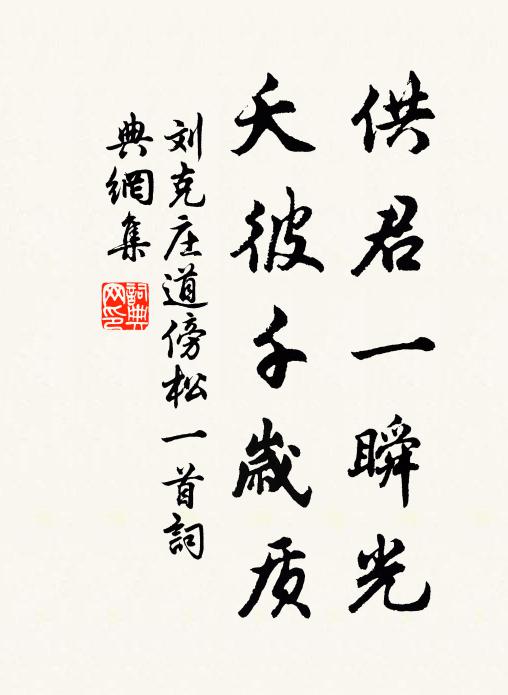 供君一瞬光
夭彼千歲质
刘克庄道傍松一首詞
典網集
詞典
网印